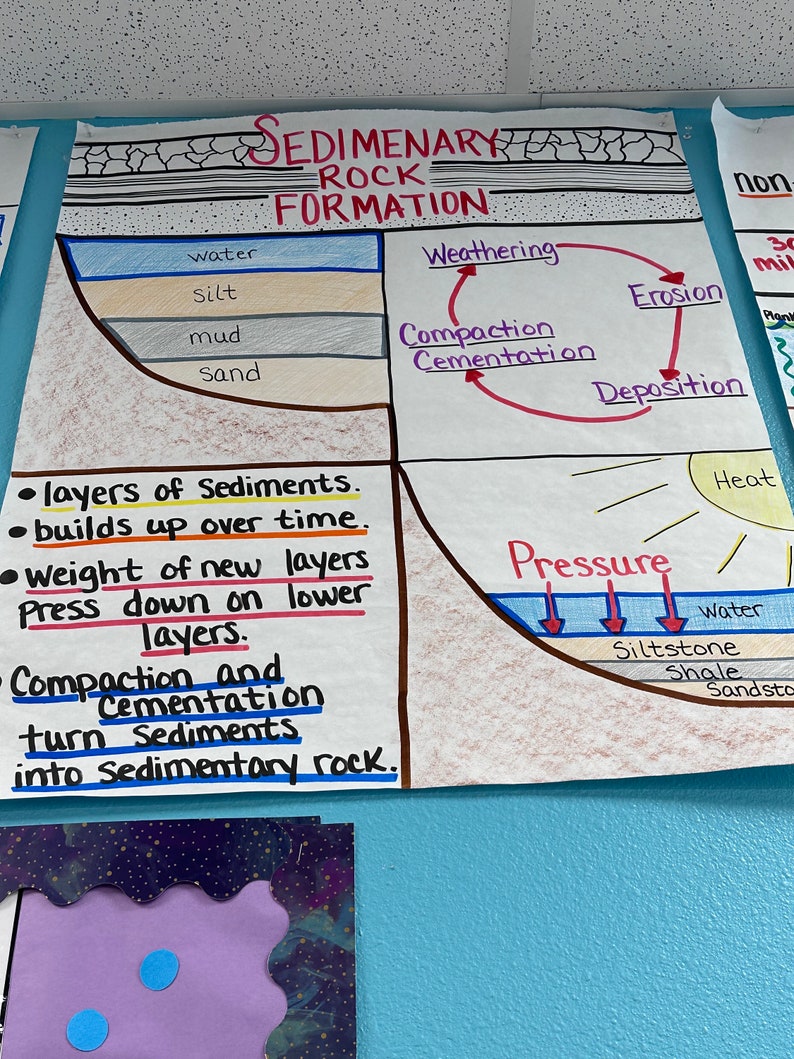 SEDIMENARY
ROCK
FORMATION
water
silt
mud
sand
Weathering
Erosion
Deposition
Compaction
Cementation
• layers of sediments.
• builds up over time.
• weight of new layers
press down on lower
layers.
• Compaction and
Cementation
turn sediments
into sedimentary rock.
Heat
Pressure
water
Siltstone
Shale
non-